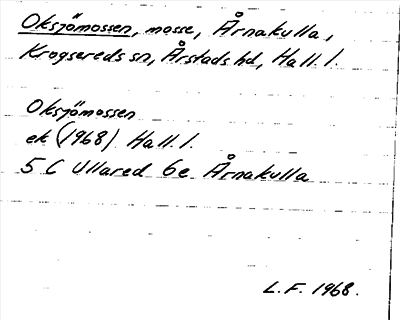 Oksjömossen, mosse, Årnakulla,
Krogsereds sn, Årstads hd, Hall. l.
Oksjömossen
ek (1968) Hall. l.
5 C Ullared 6e Årnakulla
L.F. 1968.